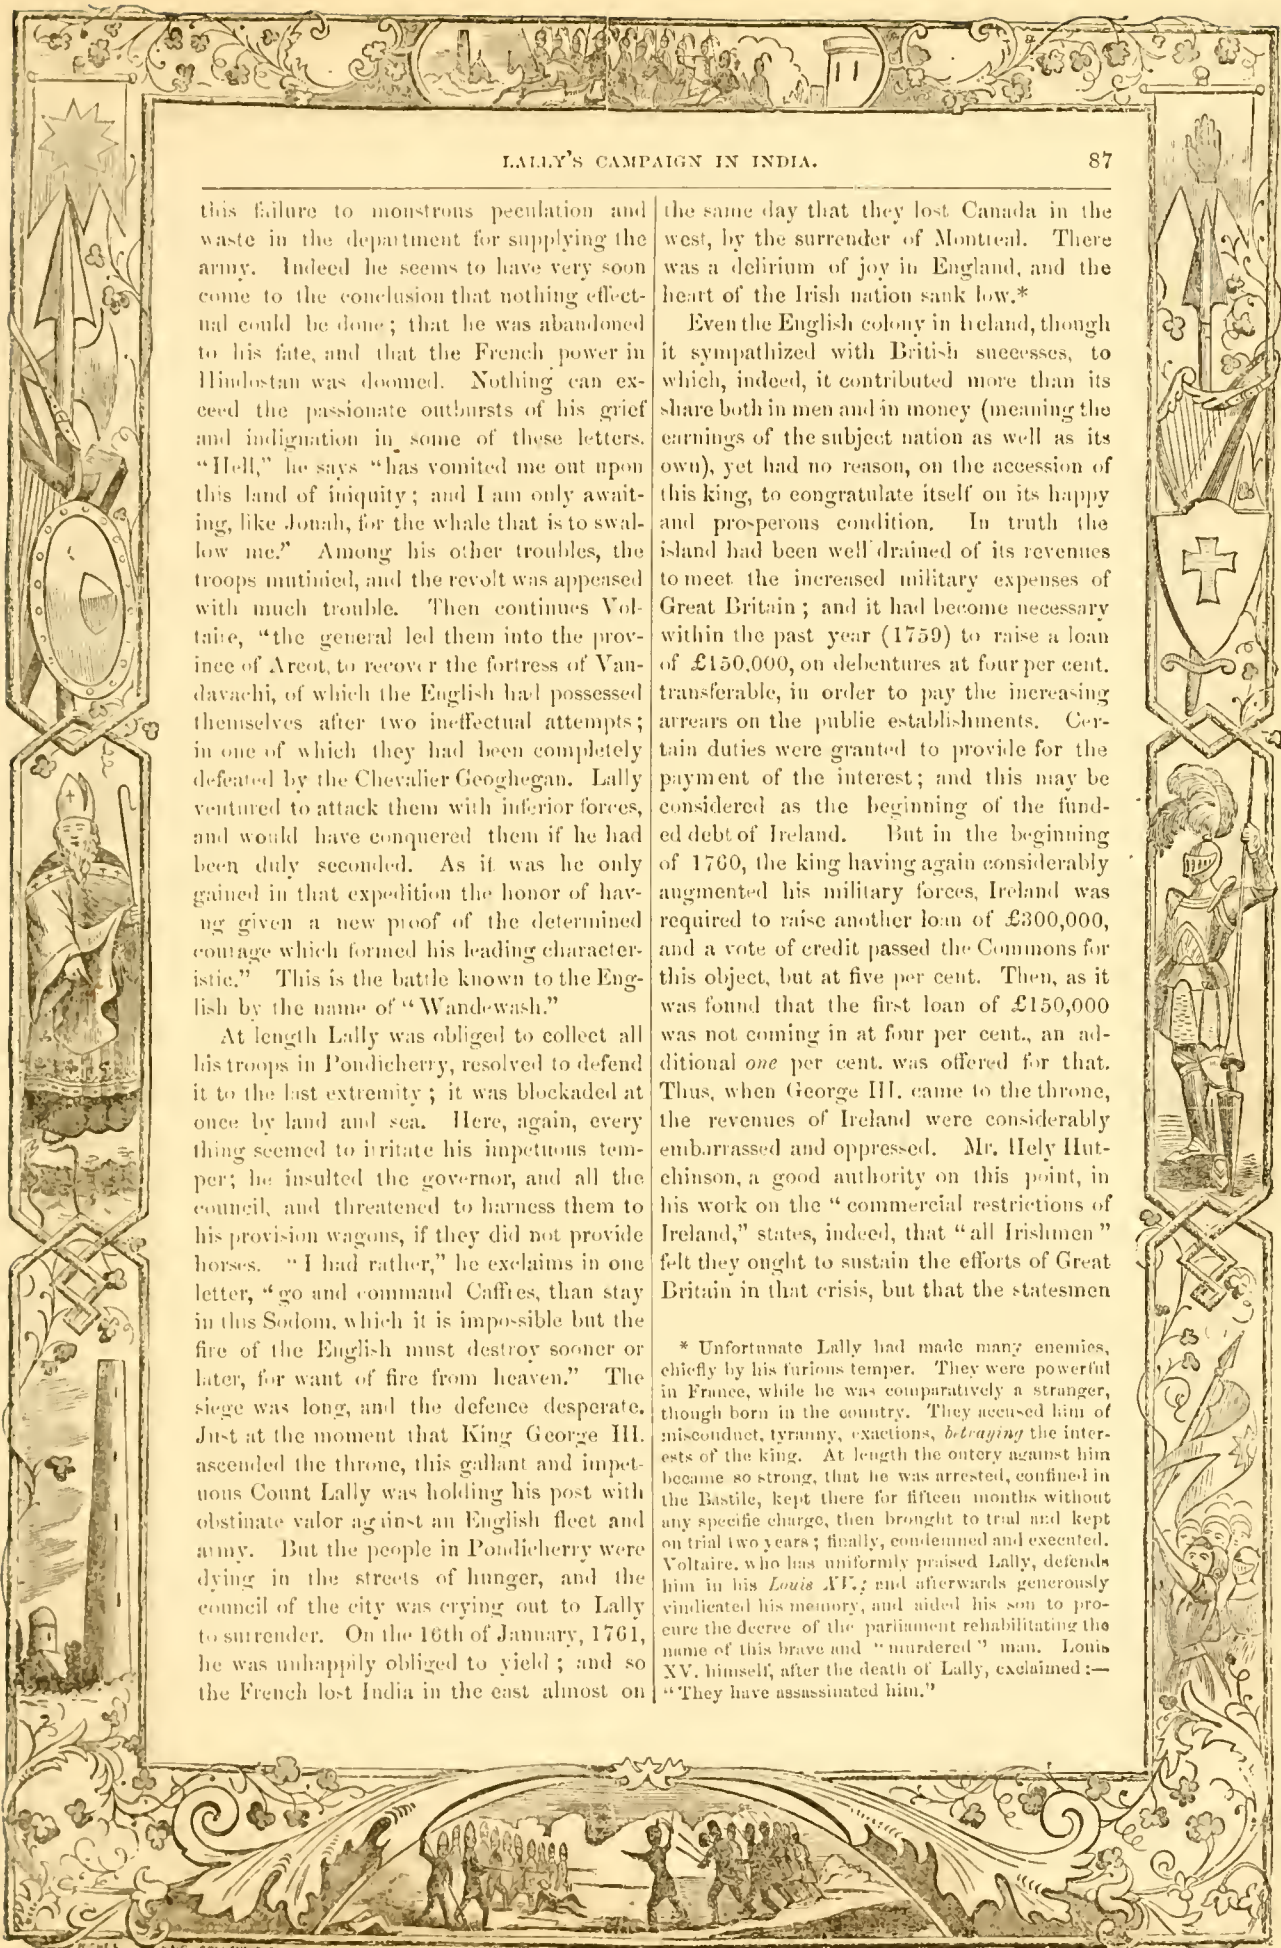 LALLY'S CAMPAIGN IN INDIA.
87
this failure to monstrous peculation and
waste in the department for supplying the
army. Indeed he seems to have very soon
come to the conclusion that nothing effect-
ual could be done; that he was abandoned
to his fate, and that the French power in
Hindostan was doomed. Nothing can ex-
ceed the passionate outbursts of his grief
and indignation in some of these letters.
"Hell," he says "has vomited me out upon
this land of iniquity; and I am only await-
ing, like Jonah, for the whale that is to swal-
low me." Among his other troubles, the
troops mutinied, and the revolt was appeased
with much trouble. Then continues Vol-
taire, "the general led them into the prov-
ince of Arcot, to recover the fortress of Van-
davachi, of which the English had possessed
themselves after two ineffectual attempts;
in one of which they had been completely
defeated by the Chevalier Geoghegan. Lally
ventured to attack them with inferior forces,
and would have conquered them if he had
been duly seconded. As it was he only
gained in that expedition the honor of hav-
ng given a new proof of the determined
courage which formed his leading character-
istic." This is the battle known to the Eng-
lish by the name of "Wandewash."
At length Lally was obliged to collect all
his troops in Pondicherry, resolved to defend
it to the last extremity; it was blockaded at
once by land and sea. Here, again, every
thing seemed to irritate his impetuous tem-
per; he insulted the governor, and all the
council, and threatened to harness them to
his provision wagons, if they did not provide
horses. "I had rather," he exclaims in one
letter, "go and command Caffres, than stay
in this Sodom, which it is impossible but the
fire of the English must destroy sooner or
later, for want of fire from heaven." The
siege was long, and the defence desperate.
Just at the moment that King George III.
ascended the throne, this gallant and impet-
uous Count Lally was holding his post with
obstinate valor against an English fleet and
army. But the people in Pondicherry were
dying in the streets of hunger, and the
council of the city was crying out to Lally
to surrender. On the 16th of January, 1761,
he was unhappily obliged to yield; and so
the French lost India in the east almost on
the same day that they lost Canada in the
west, by the surrender of Montreal. There
was a delirium of joy in England, and the
heart of the Irish nation sank low.*
Even the English colony in Ireland, though
it sympathized with British successes, to
which, indeed, it contributed more than its
share both in men and in money (meaning the
earnings of the subject nation as well as its
own), yet had no reason, on the accession of
this king, to congratulate itself on its happy
and prosperous condition. In truth the
island had been well drained of its revenues
to meet the increased military expenses of
Great Britain; and it had become necessary
within the past year (1759) to raise a loan
of £150,000, on debentures at four per cent.
transferable, in order to pay the increasing
arrears on the public establishments. Cer-
tain duties were granted to provide for the
payment of the interest; and this may be
considered as the beginning of the fund-
ed debt of Ireland. But in the beginning
of 1760, the king having again considerably
augmented his military forces, Ireland was
required to raise another loan of £300,000,
and a vote of credit passed the Commons for
this object, but at five per cent. Then, as it
was found that the first loan of £150,000
was not coming in at four per cent., an ad-
ditional one per cent. was offered for that.
Thus, when George III. came to the throne,
the revenues of Ireland were considerably
embarrassed and oppressed. Mr. Hely Hut-
chinson, a good authority on this point, in
his work on the "commercial restrictions of
Ireland," states, indeed, that "all Irishmen"
felt they ought to sustain the efforts of Great
Britain in that crisis, but that the statesmen
* Unfortunate Lally had made many enemies,
chiefly by his furious temper. They were powerful
in France, while he was comparatively a stranger,
though born in the country. They accused him of
misconduct, tyranny, exactions, betraying the inter-
ests of the king. At length the outcry against him
became so strong, that he was arrested, confined in
the Bastile, kept there for fifteen months without
any specific charge, then brought to trial and kept
on trial two years; finally, condemned and executed.
Voltaire, who has uniformly praised Lally, defends
him in his Louis XV.; and afterwards generously
vindicated his memory, and aided his son to pro-
cure the decree of the parliament rehabilitating the
name of this brave and "murdered" man. Louis
XV. himself, after the death of Lally, exclaimed:—
"They have assassinated him."